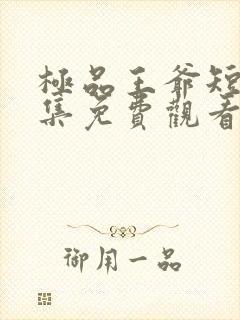 極品王爺短
集免費觀看
御用一品